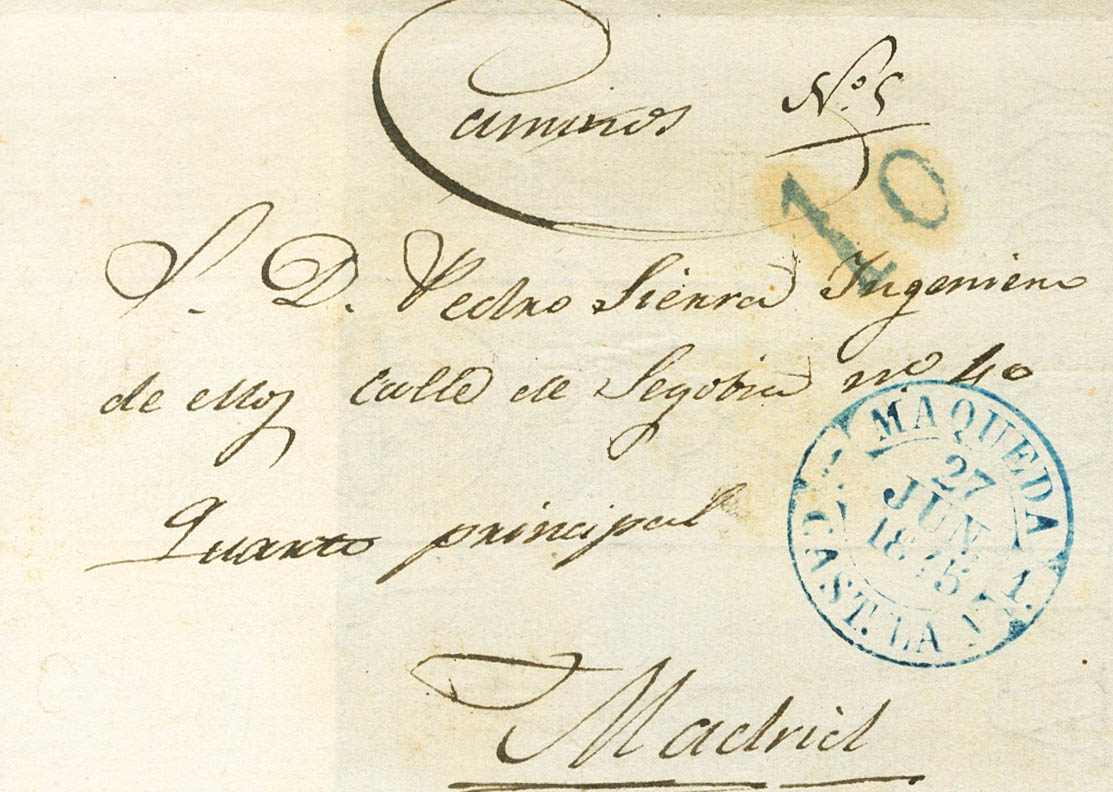 Caminos Nº 5
10
S. D. Pedro Sierra Ingeniero
de calle de Segobia nº 40
Quarto principal
Madrid
MAQUEDA
27
JUN.
1845
CAST. LA Nª